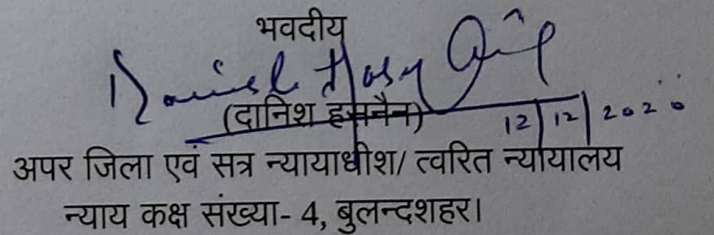 भवदीय
(दानिश हसनैन)
12/12/2020
अपर जिला एवं सत्र न्यायाधीश/ त्वरित न्यायालय
न्याय कक्ष संख्या- 4, बुलन्दशहर।